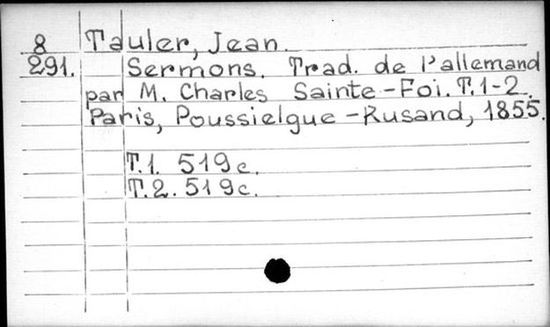 8 Tauler, Jean.
291. Sermons. Trad. de l'allemand
par M. Charles Sainte-Foi. T.1-2.
Paris, Poussielgue-Rusand, 1855.
T.1. 519 c.
T.2. 519 c.